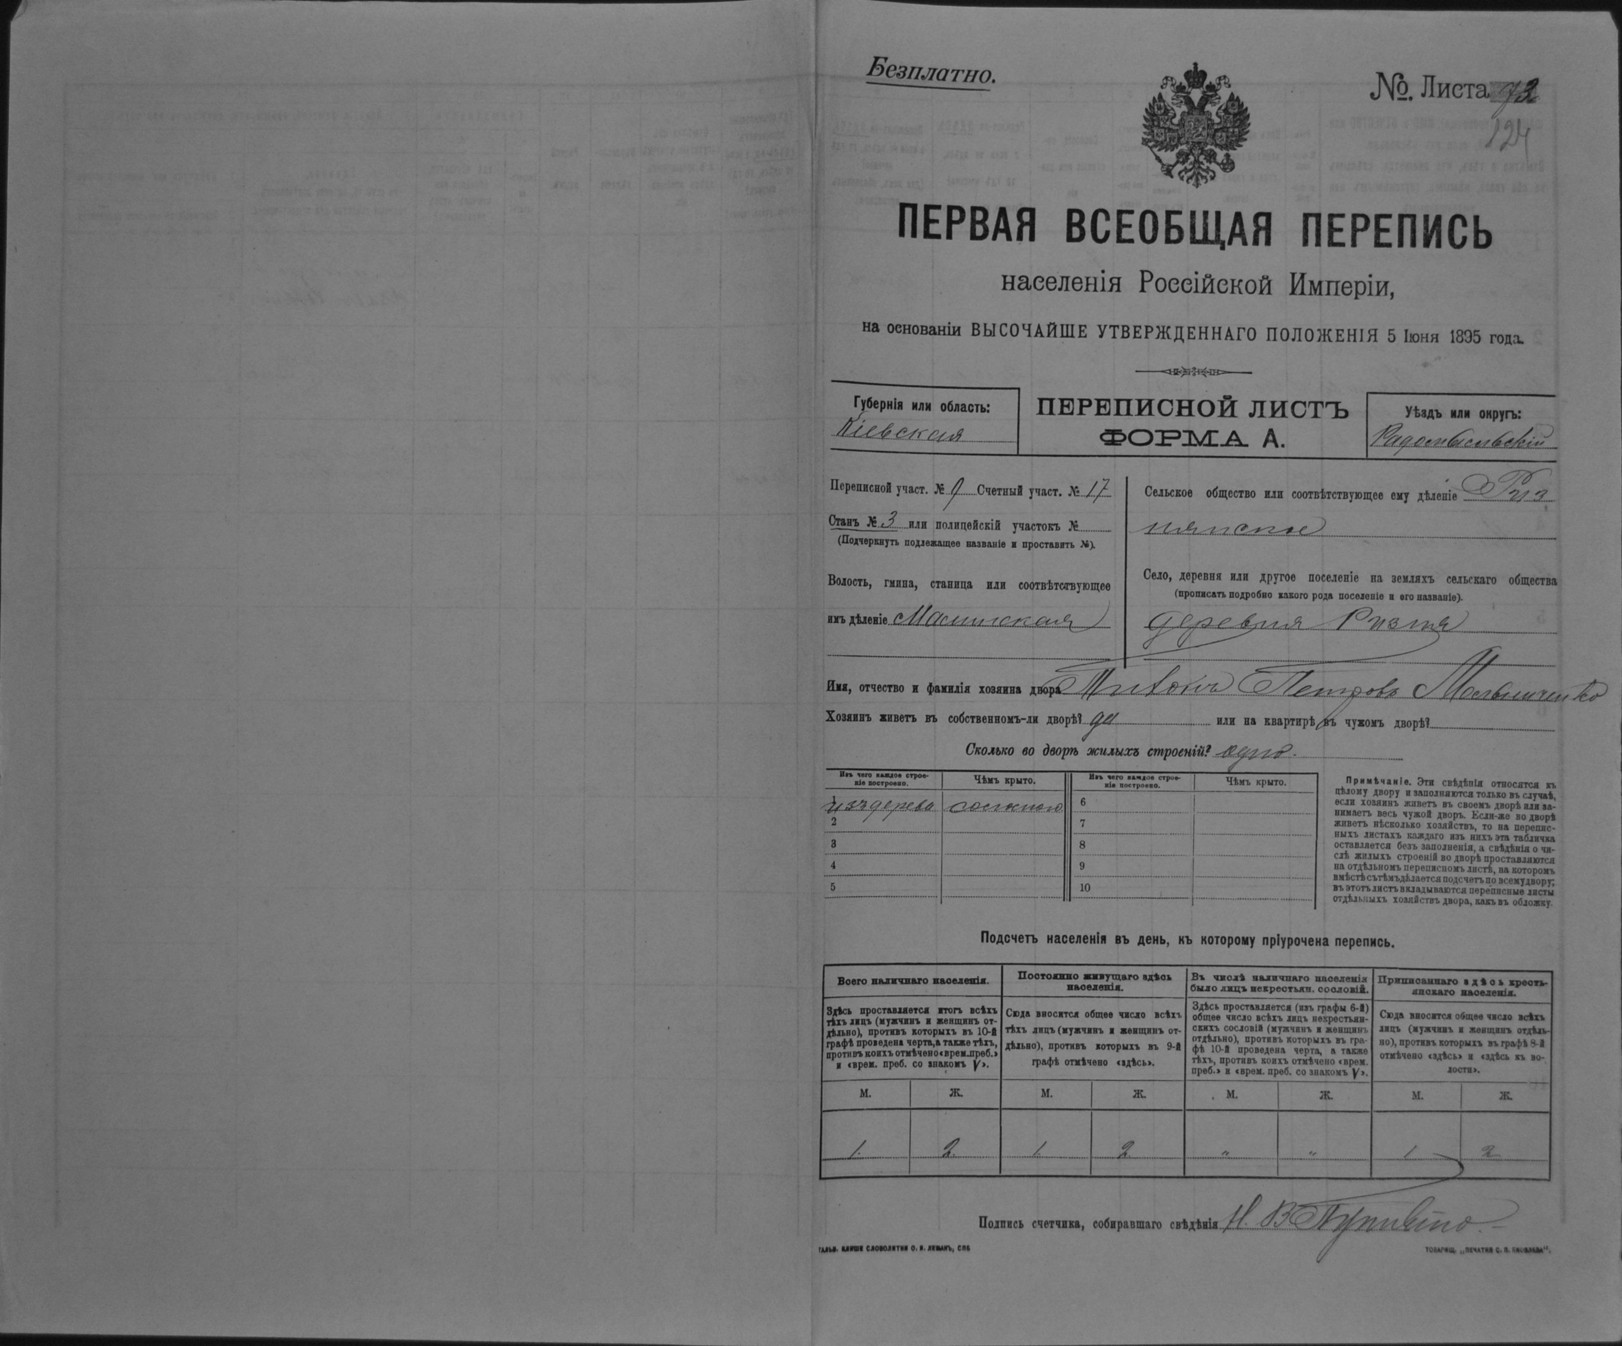 Безплатно.
№. Листа 73
124
ПЕРВАЯ ВСЕОБЩАЯ ПЕРЕПИСЬ
населенія Россійской Имперіи,
на основаніи ВЫСОЧАЙШЕ УТВЕРЖДЕННАГО ПОЛОЖЕНІЯ 5 Іюня 1895 года.
Губернія или область:
Кіевская
ПЕРЕПИСНОЙ ЛИСТЪ
ФОРМА А.
Уѣздъ или округъ:
Радомысльскій
Переписной участ. № 9 Счетный участ. № 17
Станъ № 3 или полицейскій участокъ №
(Подчеркнуть подлежащее названіе и проставить №).
Волость, гмина, станица или соотвѣтствующее
имъ дѣленіе Малинская
Сельское общество или соотвѣтствующее ему дѣленіе Риз
нянское
Село, деревня или другое поселеніе на земляхъ сельскаго общества
(прописать подробно какого рода поселеніе и его названіе).
деревня Ризня
Имя, отчество и фамилія хозяина двора Петровъ Мельниченко
Хозяинъ живетъ въ собственномъ-ли дворѣ? да или на квартирѣ въ чужомъ дворѣ?
Сколько во дворѣ жилыхъ строеній? одно.
Изъ чего каждое строе-
ніе построено.
Чѣмъ крыто.
Изъ чего каждое строе-
ніе построено.
Чѣмъ крыто.
1 изъ дерева соломою 6
2 7
3 8
4 9
5 10
Примѣчаніе. Эти свѣдѣнія относятся къ
цѣлому двору и заполняются только въ случаѣ,
если хозяинъ живетъ въ своемъ дворѣ или за-
нимаетъ весь чужой дворъ. Если-же во дворѣ
живетъ нѣсколько хозяйствъ, то на перепис-
ныхъ листахъ каждаго изъ нихъ эта табличка
оставляется безъ заполненія, а свѣдѣнія о чи-
слѣ жилыхъ строеній во дворѣ проставляются
на отдѣльномъ переписномъ листѣ, на которомъ
вмѣстѣ съ тѣмъ дѣлается подсчетъ по всему двору;
въ этотъ листъ вкладываются переписные листы
отдѣльныхъ хозяйствъ двора, какъ въ обложку.
Подсчетъ населенія въ день, къ которому пріурочена перепись.
Всего наличнаго населенія.
Здѣсь проставляется итогъ всѣхъ
тѣхъ лицъ (мужчинъ и женщинъ от-
дѣльно), противъ которыхъ въ 10-й
графѣ проведена черта, а также тѣхъ,
противъ коихъ отмѣчено «врем. преб.»
и «врем. преб. со знакомъ V».
Постоянно живущаго здѣсь
населенія.
Сюда вносится общее число всѣхъ
тѣхъ лицъ (мужчинъ и женщинъ от-
дѣльно), противъ которыхъ въ 9-й
графѣ отмѣчено «здѣсь».
Въ числѣ наличнаго населенія
было лицъ некрестьян. сословій.
Здѣсь проставляется (изъ графы 6-й)
общее число всѣхъ лицъ некрестьян-
скихъ сословій (мужчинъ и женщинъ
отдѣльно), противъ которыхъ въ гра-
фѣ 10-й проведена черта, а также
тѣхъ, противъ коихъ отмѣчено «врем.
преб.» и «врем. преб. со знакомъ V».
Приписаннаго здѣсь кресть-
янскаго населенія.
Сюда вносится общее число всѣхъ
лицъ (мужчинъ и женщинъ отдѣль-
но), противъ которыхъ въ графѣ 8-й
отмѣчено «здѣсь» и «здѣсь въ во-
лости».
М. Ж. М. Ж. М. Ж. М. Ж.
1 2 1 2 " " 1 2
Подпись счетчика, собиравшаго свѣдѣнія
ГАЛЬВ. КЛИШЕ СЛОВОЛИТНИ О. И. ЛЕМАНЪ, СПБ
ТОВАРИЩ. „ПЕЧАТНЯ С. П. ЯКОВЛЕВА".